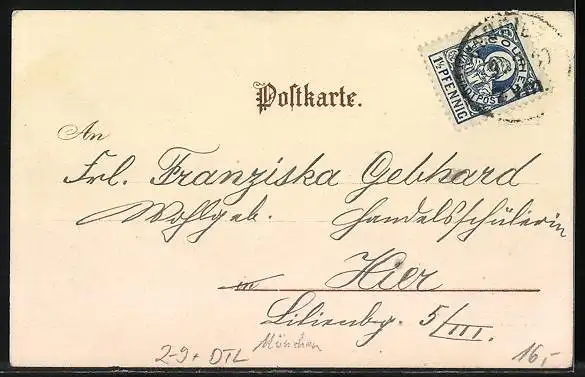 COURIER
1½ PFENNIG
STADTPOST
Postkarte.
An
Frl. Franziska Gebhard
Wohlgeb. Handelsschülerin
in Hier
Lilienbg. 5/III.
München
2-9+ DTL
16,-